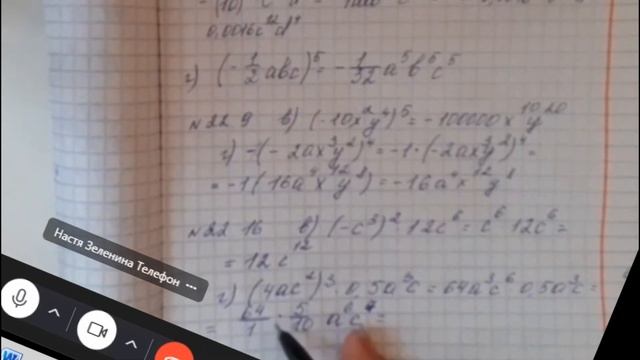 0,0016c¹²d⁴
г) (-1/2 abc)⁵ = -1/32 a⁵b⁵c⁵
№ 22 9 в) (-10x²y⁴)⁵ = -100000x¹⁰y²⁰
г) -(-2ax³y²)⁴ = -1·(-2ax³y²)⁴ =
= -1(16a⁴x¹²y⁸) = -16a⁴x¹²y⁸
№ 22 16 в) (-c³)² 12c⁶ = c⁶ 12c⁶ =
= 12c¹²
г) (4ac²)³ · 0,5a³c = 64a³c⁶ 0,5a³c =
= 64/1 · 5/10 a⁶c⁷ =
Настя Зеленина Телефон ...